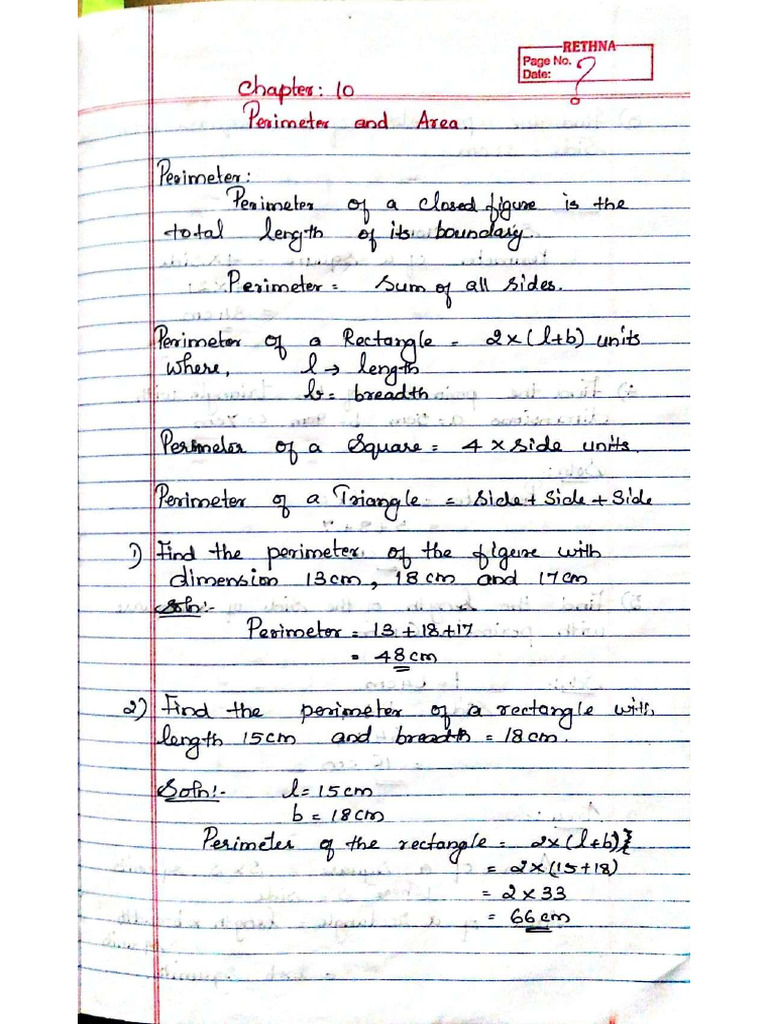 RETHNA
Page No. ?
Date:
Chapter: 10
Perimeter and Area
Perimeter:
Perimeter of a closed figure is the
total length of its boundary.
Perimeter = Sum of all sides.
Perimeter of a Rectangle = 2×(l+b) units
where, l → length
b = breadth
Perimeter of a Square = 4 × side units.
Perimeter of a Triangle = Side + Side + Side
1) Find the perimeter of the figure with
dimension 13cm, 18cm and 17cm
Soln:-
Perimeter = 13+18+17
= 48cm
2) Find the perimeter of a rectangle with
length 15cm and breadth = 18cm.
Soln:- l = 15cm
b = 18cm
Perimeter of the rectangle = 2×(l+b)}
= 2×(15+18)
= 2×33
= 66cm